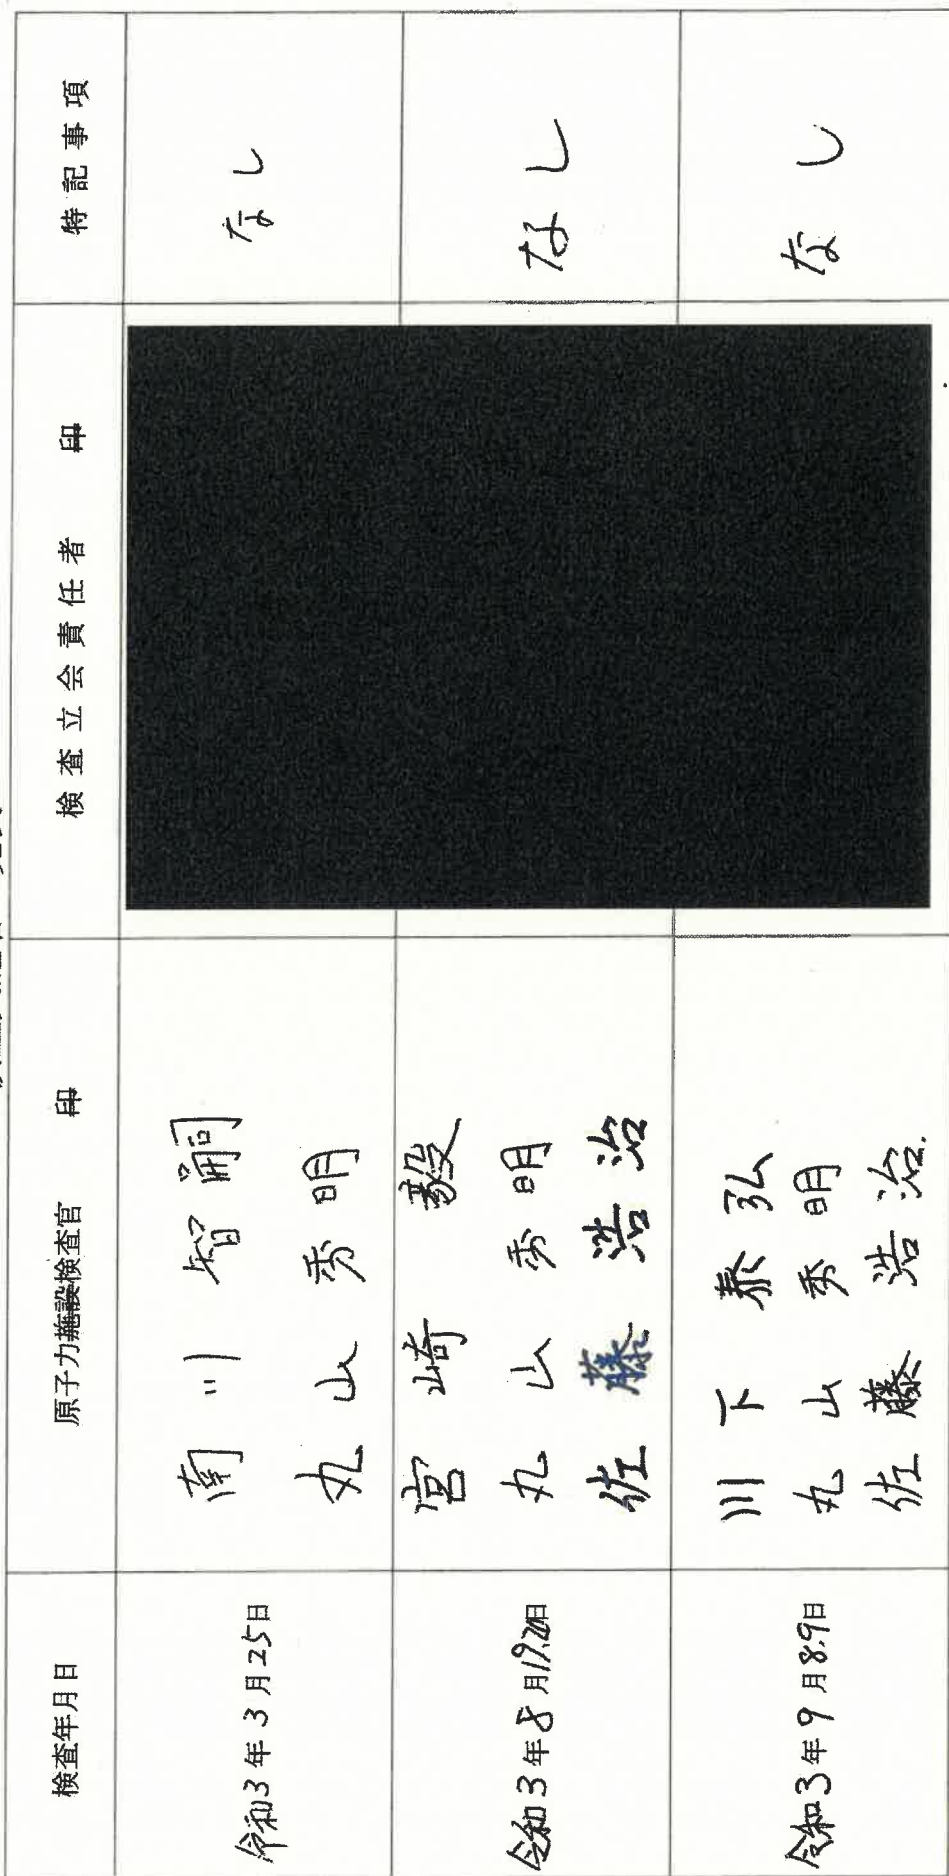 検査年月日
原子力施設検査官 印
検査立会責任者 印
特記事項
令和3年3月25日
南川智嗣
丸山秀明
なし
令和3年8月19,20日
宮崎毅
丸山秀明
佐藤浩治
なし
令和3年9月8,9日
川下泰弘
丸山秀明
佐藤浩治
なし